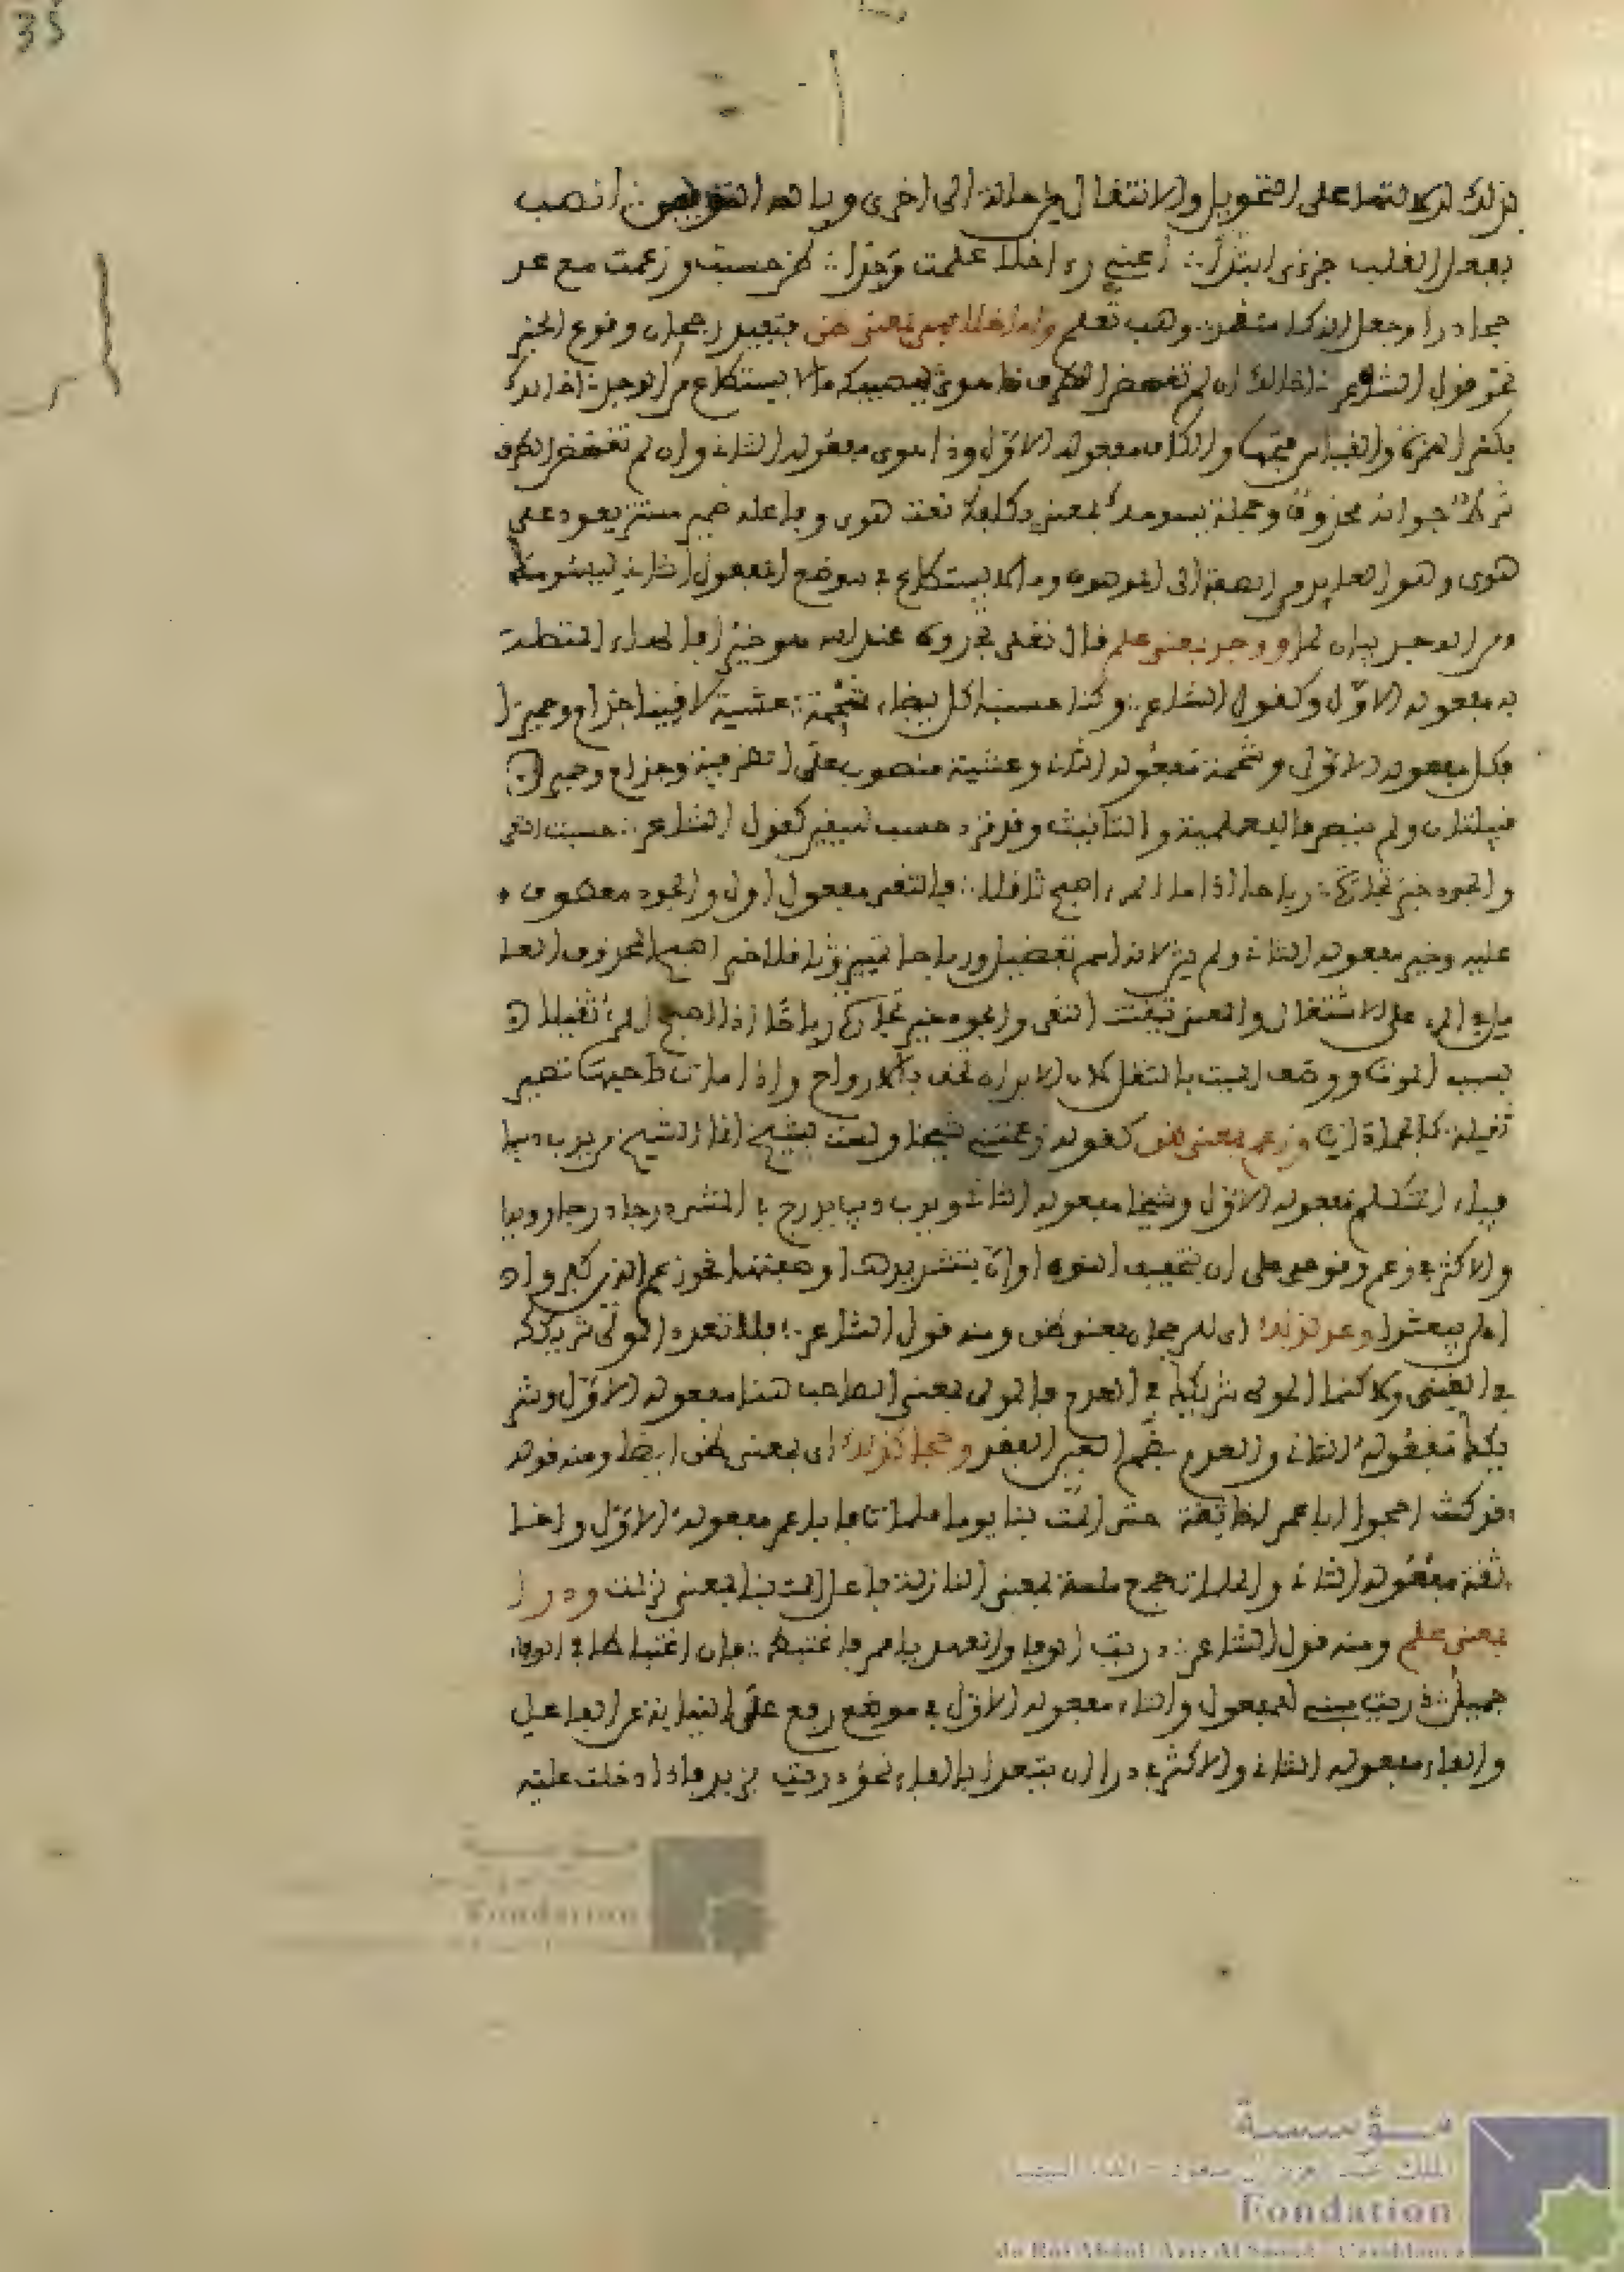 35
بذلك لدلالتها على التحويل والانتقال من حالة الى اخرى وبالله التوفيق ∴ انصب
بفعل القلب جزءى ابتدا ∴ اعنى رءا خال علمت وجدا ∴ ظن حسبت وزعمت مع عد
حجا درا وجعل اللذ كاعتقد وهب تعلم واما خال فهي بمعنى ظن فتفيد رجحان وقوع الخبر
نحو قول الشاعر ∴ اخالك ان لم تغضض الطرف ذا هوى يسومك ما لا يستطاع من الوجد ∴ اخالك
بكسر الهمزة والقياس فتحها والكاف مفعوله الاول وذا هوى مفعوله الثانى وان لم تغضض الطرف
شرط جوابه محذوف وجملة يسومك بمعنى يكلفك نعت هوى وفاعله ضمير مستتر يعود على
هوى وهو العايد من الصفة الى الموصوف وما لا يستطاع في موضع المفعول الثانى ليسومك
ومن الوجد بيان لما ووجد بمعنى علم قال تعلى تجدوه عند الله هو خيرا فالهاء المتصلة
به مفعوله الاول وكقول الشاعر ∴ وكنا حسبنا كل بيضاء شحمة ∴ عشية لاقينا جذام وحميرا
فكل مفعوله الاول وشحمة مفعوله الثانى وعشية منصوب على الظرفية وجذام وحمير
قبيلتان ولم ينصرفا للعلمية والتانيث وقد ترد حسب لليقين كقول الشاعر ∴ حسبت التقى
والجود خير تجارة ∴ رباحا اذا ما المرء اصبح ثاقلا ∴ فالتقى مفعول اول والجود معطوف
عليه وخير مفعوله الثانى ولم يثن لانه اسم تفضيل ورباحا تمييز وثاقلا خبر اصبح المحذوف العا
مل في المرء على الاشتغال والمعنى تيقنت التقى والجود خير تجارة رباحا اذا اصبح المرء ثقيلا
بسبب الموت ووصف الميت بالثقل لان الابدان تخف بالارواح واذا مات صاحبها تصير
ثقيلة كالجمادات وزعم بمعنى ظن كقوله زعمتنى شيخا ولست بشيخ انما الشيخ من يدب دبيبا
فياء المتكلم مفعوله الاول وشيخا مفعوله الثانى ويدب دبيبا يدرج في المشى درجا درجا رويدا
والاكثر في زعم وقوعه على ان بتخفيف النون او ان بتشديدها وصلتهما نحو زعم الذين كفروا ان
لن يبعثوا وعد كذلك اى للرجحان بمعنى ظن ومنه قول الشاعر ∴ فلا تعدد المولى شريكك
في الغنى ولاكنما المولى شريكك في العدم فالمولى بمعنى الصاحب هنا مفعوله الاول وشر
يكك مفعوله الثانى والعدم بضم العين الفقر وحجا كذلك اى بمعنى ظن ايضا ومنه قوله
قد كنت احجوا ابا عمر اخا ثقة حتى المت بنا يوما ملمات فابا عمر مفعوله الاول واخا
ثقة مفعوله الثانى والملمات جمع ملمة بمعنى النازلة فاعل المت بنا بمعنى نزلت ودرا
بمعنى علم ومنه قول الشاعر ∴ دريت الوفى العهد يا عمر فاغتبط ∴ فان اغتباطا في الوفاء
جميل ∴ دريت مبنى للمفعول والتاء مفعوله الاول في موضع رفع على النيابة عن الفاعل
والوفى مفعوله الثانى والاكثر في درا ان يتعدا بالباء نحو دريت بزيد فاذا دخلت عليه
مؤسسة
Fondation
مؤسسة
الملك عبد العزيز آل سعود - الدار البيضاء
Fondation
du Roi Abdul-Aziz Al Saoud - Casablanca